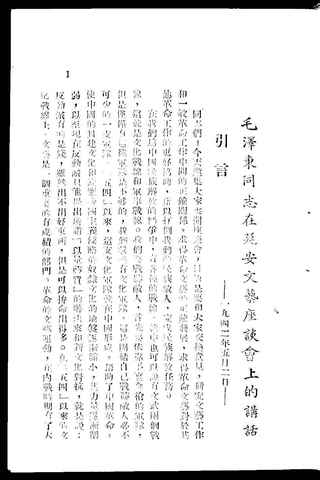 毛澤東同志在延安文藝座談會上的講話
——一九四二年五月二日——
引言
同志們！今天邀集大家來開座談會，目的是要和大家交換意見，研究文藝工作
和一般革命工作中間的正確關係，求得革命文藝的正確發展，求得革命文藝對於其
他革命工作的更好協助，藉以打倒我們的民族敵人，完成民族解放任務。
在我們為中國民族解放的鬥爭中，有各種的戰線，其中也可以說有文武兩個戰
線，這就是文化戰線和軍事戰線。我們要戰勝敵人，首先要依靠手裏拿槍的軍隊，
但是僅僅有這種軍隊是不夠的，我們還要有文化軍隊，這是團結自己戰勝敵人必不
可少的一支軍隊。「五四」以來，這支文化軍隊就在中國形成，幫助了中國革命，
使中國的封建文化和適應帝國主義侵略的奴隸文化的地盤逐漸縮小，其力量逐漸削
弱，以至現在反動派只能提出所謂「以量勝質」的辦法來和新文化對抗，就是說：
反動派有的是錢，雖然出不出好東西，但是可以拚命出得多。在「五四」以來的文
化戰線上，文藝是一個重要的有成績的部門。革命的文藝運動，在內戰時期有了大
1